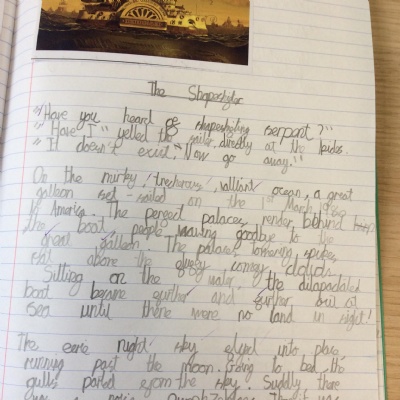 The Shapeshifter
"Have you heard of shapeshifting serpant?"
"Have I" yelled the sailor directly at the kids.
"It doesn't exist. Now go away."
On the murky, trecherous, valliant ocean, a great
galleon set-sailed on the 1st March
to America. The perfect palaces, render behind
the boat, people waving goodbye to the
great galleon. The palaces towering spikes,
sat above the clouds.
Sitting on the water, the dilapadated
boat became further and further out at
sea until there were no land in sight!
The eerie night sky edged into place,
running past the moon. Going to bed, the
gulls parted from the sky. Suddly there
was a noise